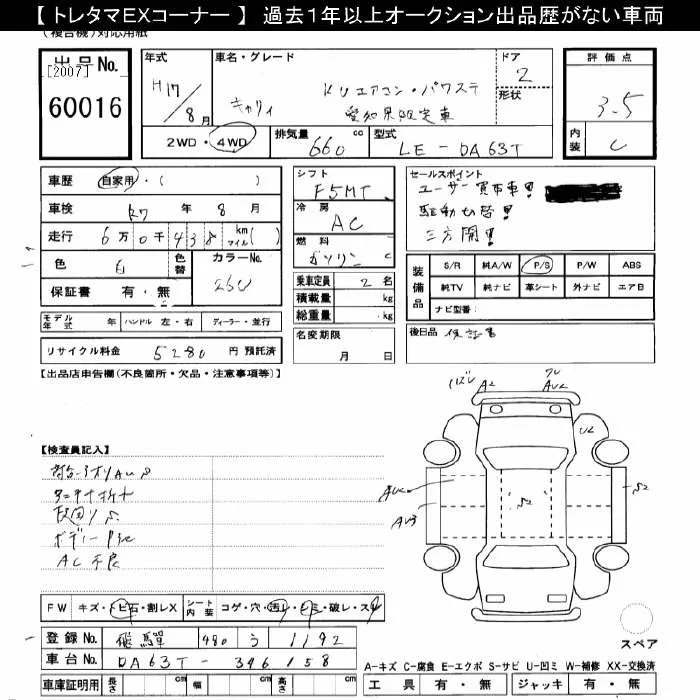 【 トレタマEXコーナー 】 過去１年以上オークション出品歴がない車両
(複合機)対応用紙
出品No.
[2007]
60016
年式
H17/8月
車名・グレード
キャリィ
KUエアコン・パワステ
愛知県限定車
ドア
2
形状
評価点
3.5
内装
C
2WD・4WD
排気量 660 cc
型式 LE-DA63T
車歴 自家用・( )
車検 R7 年 8 月
走行 6万0千438 km マイル( )
色 白 色替 カラーNo. 26U
保証書 有・無
モデル年式 年 ハンドル 左・右 ディーラー・並行
リサイクル料金 5280 円 預託済
シフト
F5MT
冷房
AC
燃料
ガソリン
乗車定員 2 名
積載量 kg
総重量 kg
名変期限
月 日
セールスポイント
ユーザー買取車!
駆動切替!
三方開!
装備品
S/R 純A/W P/S P/W ABS
純TV 純ナビ 革シート 外ナビ エアB
ナビ型番:
後日品 保証書
【出品店申告欄(不良箇所・欠品・注意事項等)】
【検査員記入】
ボディー
AC不良
A2
U2
S2
S2
FW キズ・トビ石・割レX シート内装 コゲ・穴・汚レ・シミ・破レ・スレ
登録No. 飛騨 480 う 1192
車台No. DA63T-346158
車庫証明用 長さ cm 幅 cm 高さ cm
スペア
A-キズ C-腐食 E-エクボ S-サビ U-凹ミ W-補修 XX-交換済
工具 有・無 ジャッキ 有・無